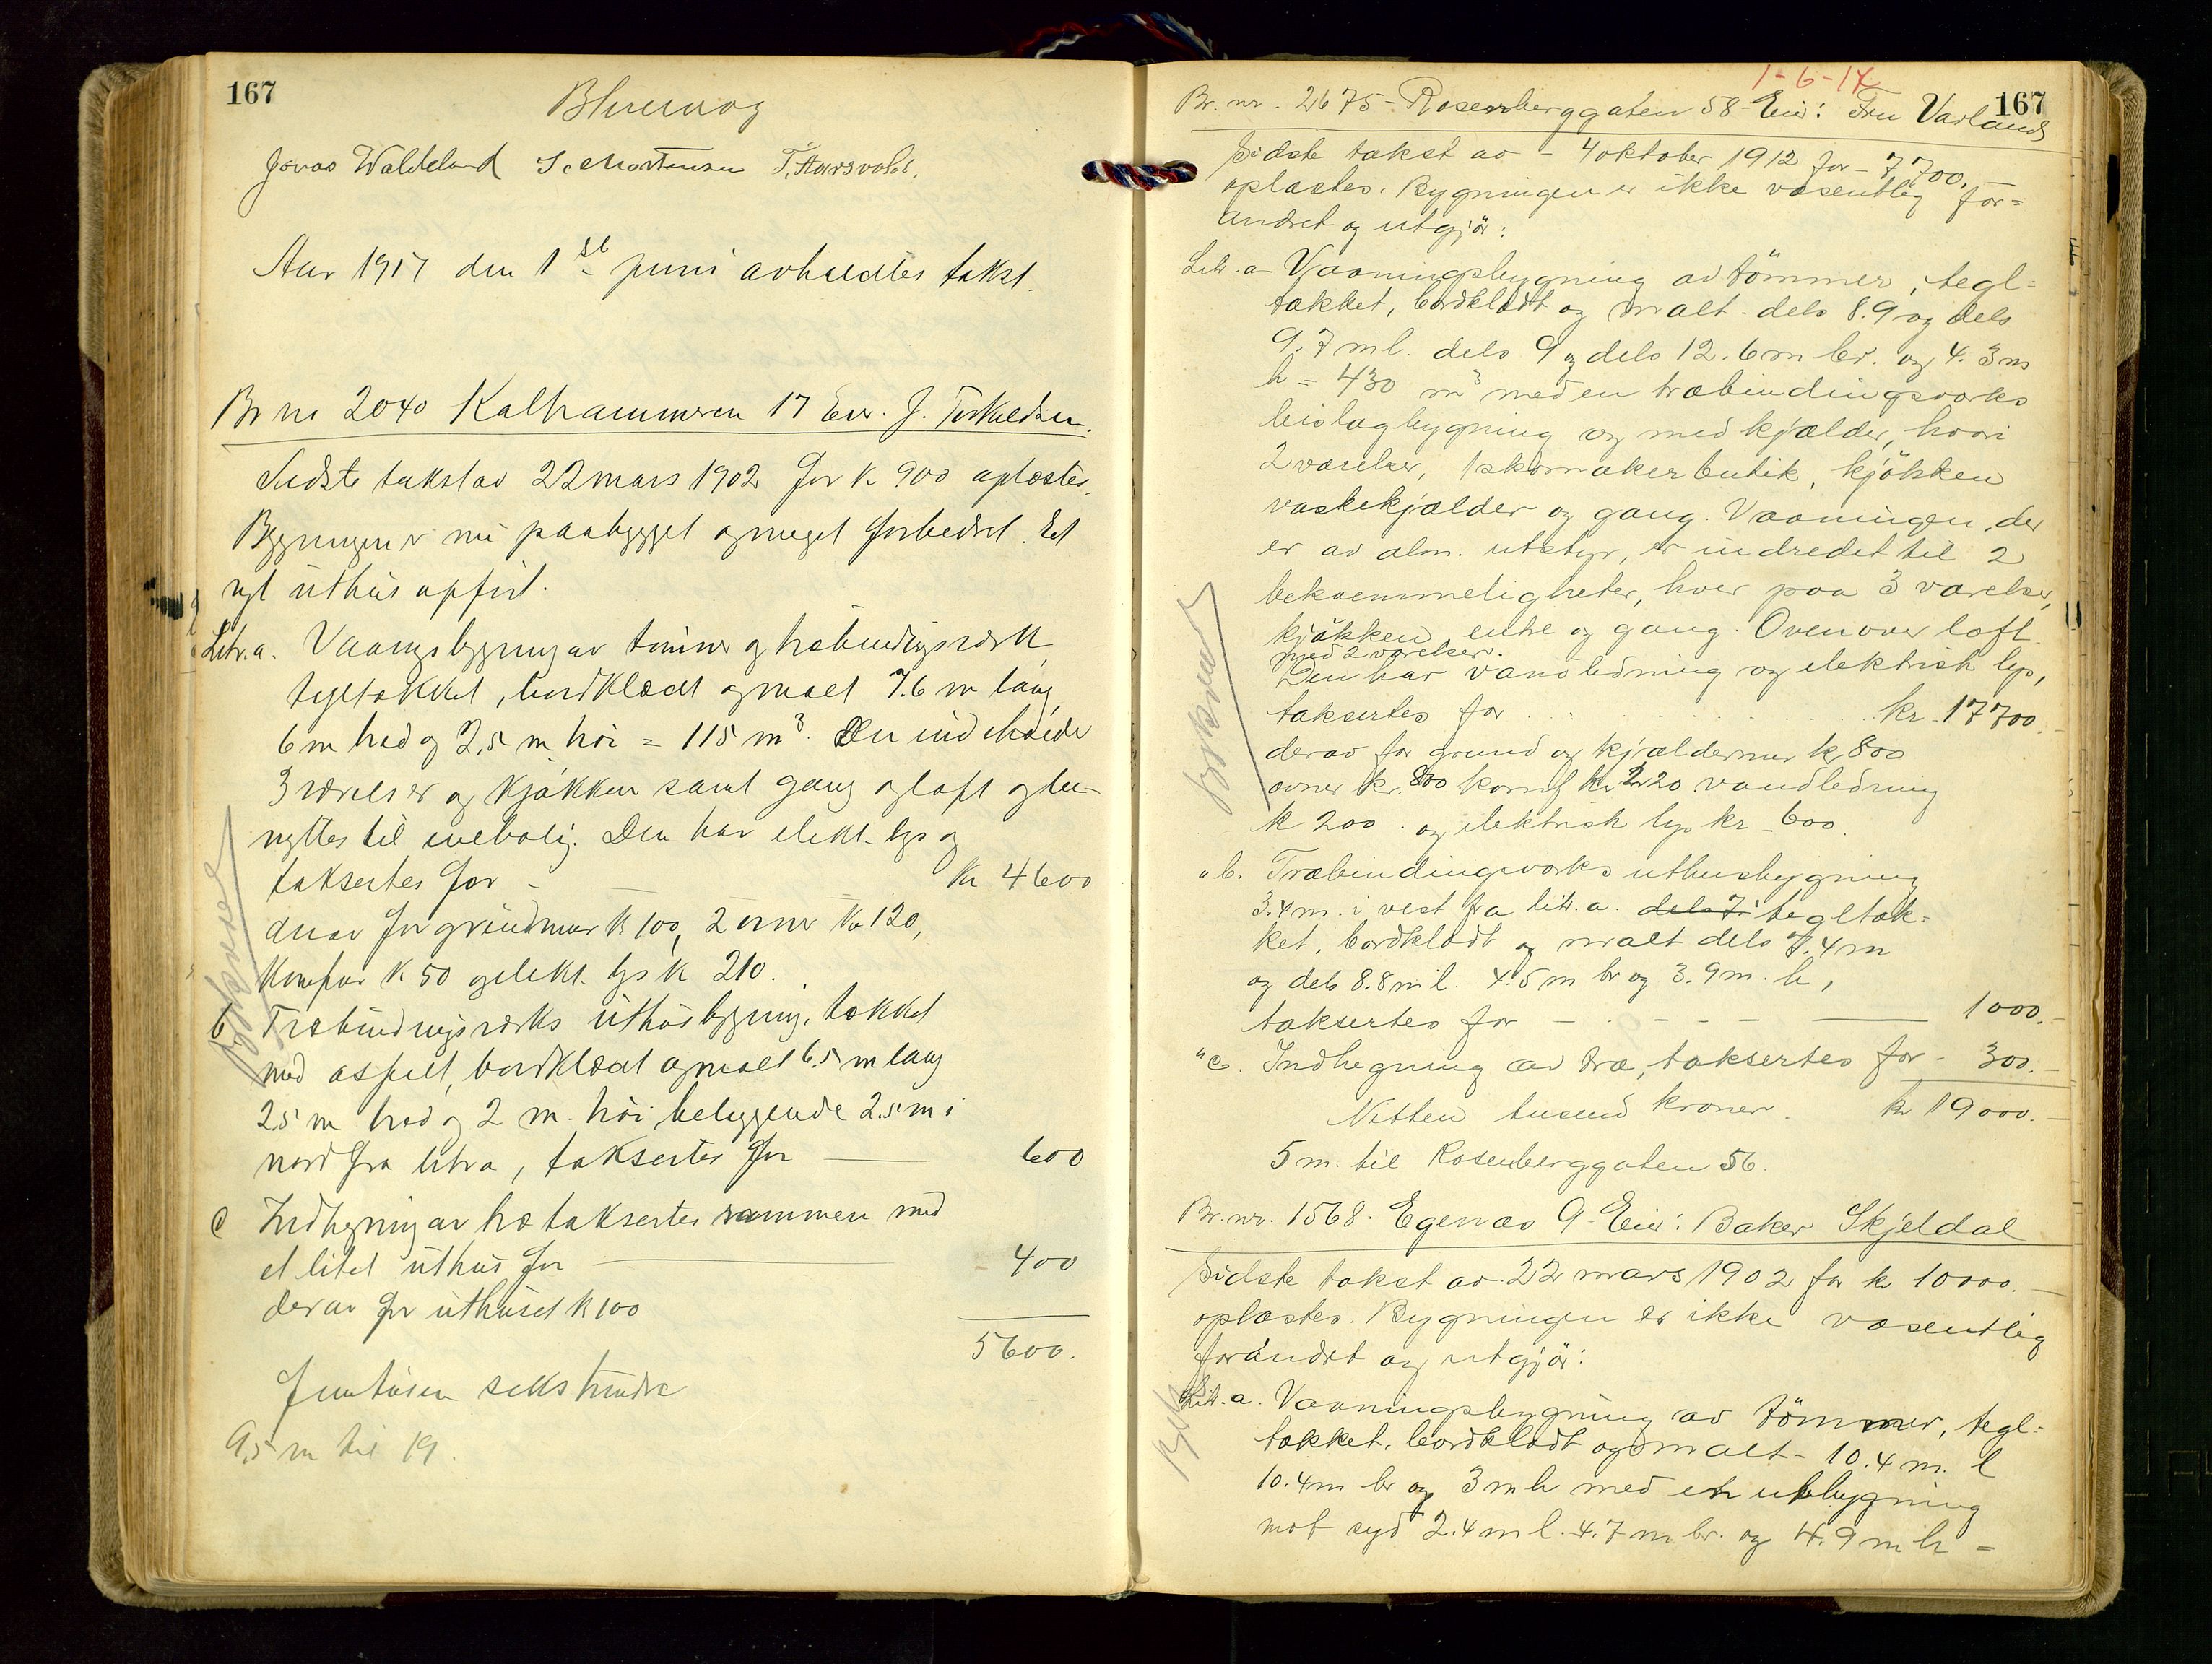 167
Jonas Waldeland S. Mortensen T. Aarsvold.
Aar 1917 den 1ste juni avholdtes takst.
Br nr 2040 Kalhammeren 17 Eier. J. Torkildsen.
Sidste takst av 22 mars 1902 for k. 900 oplæstes.
Bygningen er nu paabygget og meget forbedret. Et
nyt uthus opført.
Litr. a. Vaaningsbygning av tømmer og træbindingsverk
tegltækket, bordklædt og malt 7.6 m lang
6 m bred og 2,5 m høi = 115 m3. Den indeholder
3 værelser og kjøkken samt gang og loft og be-
nyttes til enebolig. Den har elekt. lys og
taksertes for - kr 4600
derav for grundmur k 100, 2 ovner kr 120,
komfur k 50 og elekt. lys k 210.
b Træbindingsverks uthusbygning, tækket
med asfalt, bordklædt og malt 6.5 m lang
2.5 m bred og 2 m. høi beliggende 2.5 m i
nord fra litr a, taksertes for 600
c Indhegning av træ taksertes sammen med
et litet uthus for 400
derav for uthuset k 100
5600.
Femtusen sekshundre
9,5 m til 19.
Bygskred
1-6-17
167
Br. nr. 2675 - Rosenberggaten 58 - Eier: Fru Varland
Sidste takst av - 4 oktober 1912 for - 7700.-
oplæstes. Bygningen er ikke væsentlig for=
andret og utgjör:
Litr. a - Vaaningsbygning av tömmer, tegl=
tækket, bordklædt og malt - dels 8.9 og dels
9.7 m l. dels 9 og dels 12.6 m br. og 4.3 m
h = 430 m3 med en træbindingsverks
bislagbygning og med kjælder, hvori
2 værelser, 1 skomakerbutik, kjökken
vaskekjælder og gang. Vaaningen, der
er av alm. utstyr, er indredet til 2
bekvemmeligheter, hver paa 3 værelser,
kjökken, entre og gang. Ovenover loft
med 2 værelser.
Den har vandledning og elektrisk lys,
taksertes for kr. 17700.-
derav for grund og kjældermur kr 800
ovner kr. 800 komf kr 220 vandledning
k 200. og elektrisk lys kr - 600.
" b. Træbindingsverks uthusbygning
3.4 m. i vest fra litr. a. dels 7. tegltæk=
ket, bordklædt og malt dels 7.4 m
og dels 8.8 m l. 4.5 m br og 3.9 m. h,
taksertes for - - - - 1000.-
" c. Indhegning av træ, taksertes for - 300.-
Nitten tusend kroner. kr 19000.-
5 m. til Rosenberggaten 56.
Br. nr. 1568. Egenæs 9 - Eier: Baker Skjeldal
Sidste takst av 22 mars 1902 for kr 10000.-
oplæstes. Bygningen er ikke væsentlig
forandret og utgjör:
Litr. a. Vaaningsbygning av tömmer, tegl=
tækket, bordklædt og malt - 10.4 m. l
10.4 m br og 3 m h med en utbygning
mot syd 2.4 m l. 4.7 m br. og 4.9 m h =